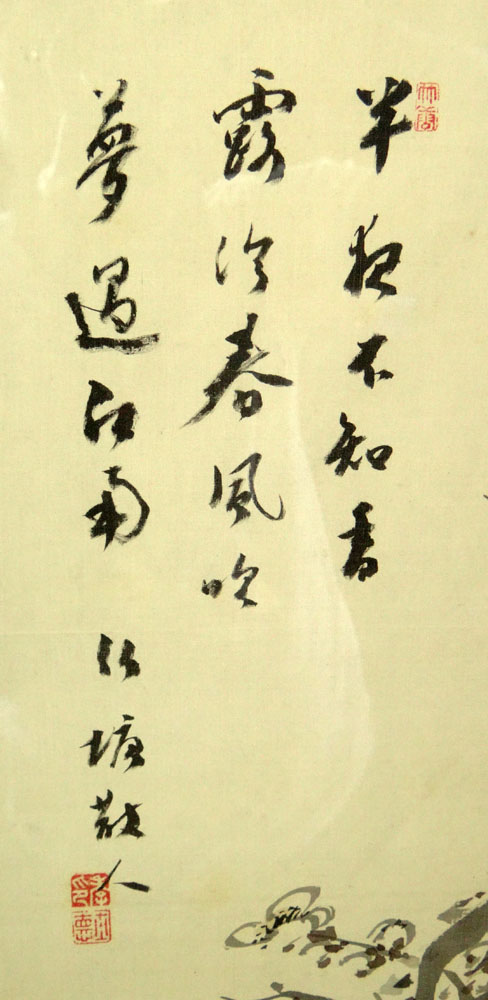 半夜不知香
露冷春風吹
夢過江南 竹塘散人